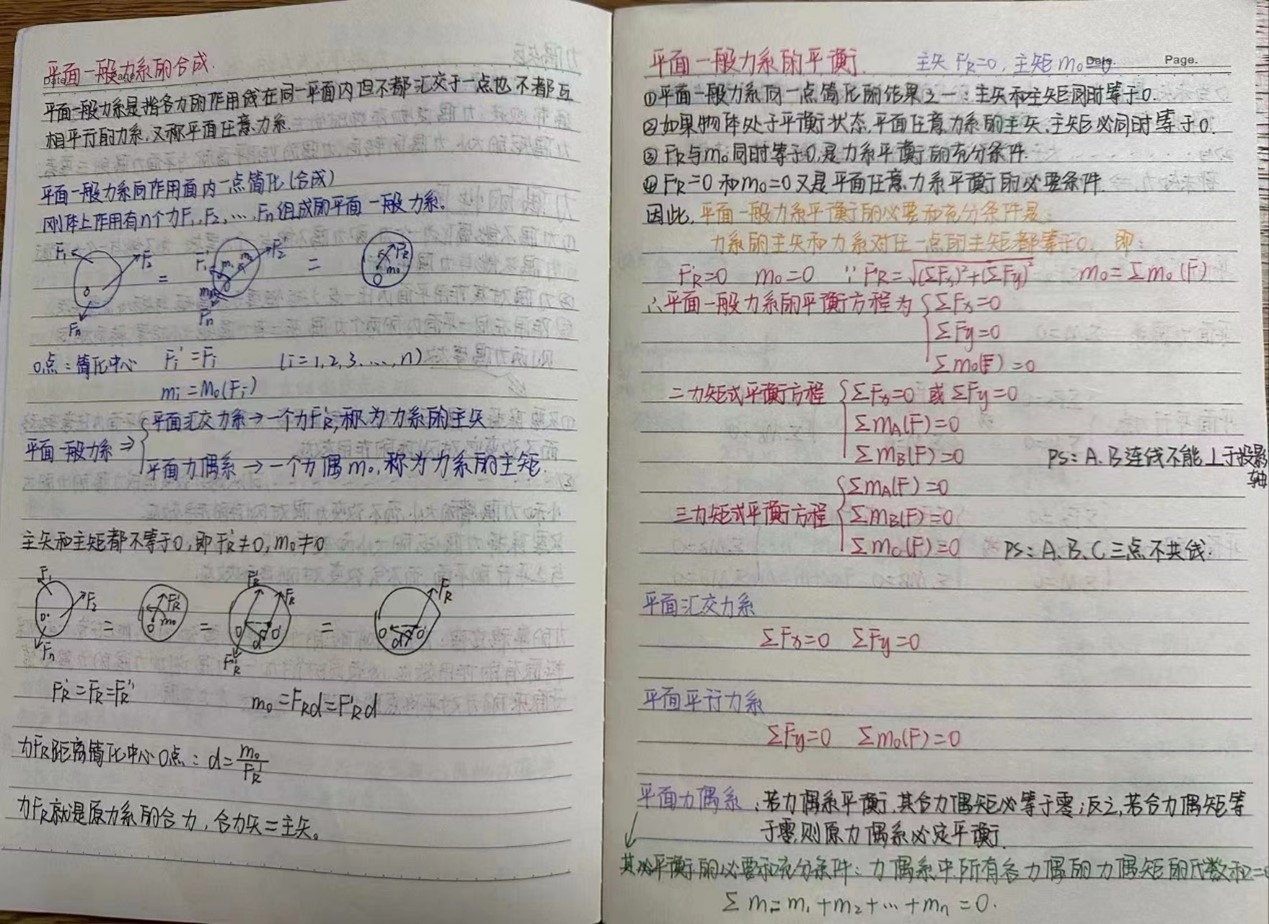 平面一般力系的合成.
平面一般力系是指各力的作用线在同一平面内但不都汇交于一点也不都互
相平行的力系,又称平面任意力系.
平面一般力系向作用面内一点简化(合成)
刚体上作用有n个力F₁,F₂,…,Fn组成的平面一般力系.
F₁ F₂ Fn O = F₁' F₂' Fn' m₁ m₂ mn = FR' m₀ O
O点:简化中心 Fi'=Fi (i=1,2,3,…,n)
mi=M₀(Fi)
平面一般力系⇒
平面汇交力系→一个力FR',称为力系的主矢
平面力偶系→一个力偶m₀,称为力系的主矩.
主矢和主矩都不等于0,即FR'≠0,m₀≠0
F₁ F₂ Fn O = FR' m₀ O = FR' FR FR'' O d O' = FR O d O'
FR'=FR=FR'' m₀=FRd=FR'd
力FR距离简化中心O点:d=m₀/FR'
力FR就是原力系的合力,合力矢=主矢。
平面一般力系的平衡. 主矢FR=0,主矩m₀=0
Date. Page.
①平面一般力系向一点简化的结果之一:主矢和主矩同时等于0.
②如果物体处于平衡状态,平面任意力系的主矢、主矩必同时等于0.
③FR与m₀同时等于0,是力系平衡的充分条件.
④FR=0和m₀=0又是平面任意力系平衡的必要条件.
因此,平面一般力系平衡的必要和充分条件是:
力系的主矢和力系对任一点的主矩都等于0. 即:
FR'=0 m₀=0 ∵FR'=√(ΣFx)²+(ΣFy)² m₀=Σm₀(F)
∴平面一般力系的平衡方程为
ΣFx=0
ΣFy=0
Σm₀(F)=0
二力矩式平衡方程
ΣFx=0 或 ΣFy=0
ΣmA(F)=0
ΣmB(F)=0 PS:A.B连线不能⊥于投影轴
三力矩式平衡方程
ΣmA(F)=0
ΣmB(F)=0
ΣmC(F)=0 PS:A.B.C三点不共线.
平面汇交力系
ΣFx=0 ΣFy=0
平面平行力系
ΣFy=0 Σm₀(F)=0
平面力偶系:若力偶系平衡,其合力偶矩必等于零;反之,若合力偶矩等
于零,则原力偶系必定平衡.
平衡的必要和充分条件:力偶系中所有各力偶的力偶矩的代数和=0
Σm=m₁+m₂+…+mn=0.